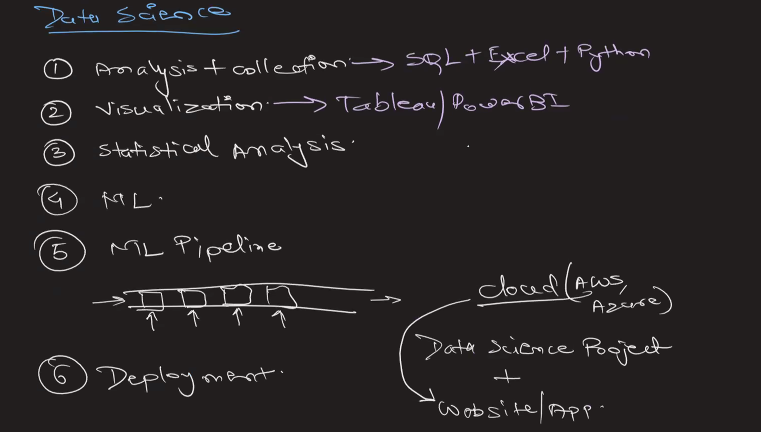 Data Science
① Analysis + collection. → SQL + Excel + Python
② Visualization. → Tableau/PowerBI
③ Statistical Analysis.
④ ML.
⑤ ML Pipeline
cloud (AWS,
Azure)
Data Science Project
⑥ Deployment.
+
Website/App.